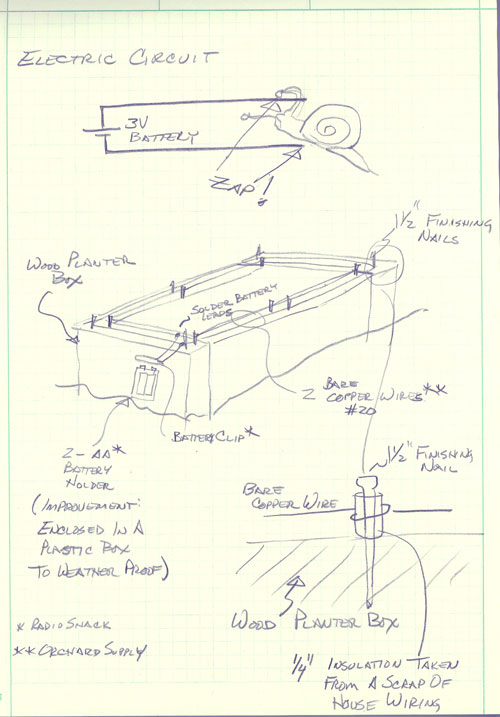 ELECTRIC CIRCUIT
3V
BATTERY
ZAP!
1 1/2" FINISHING
NAILS
WOOD PLANTER
BOX
SOLDER BATTERY
LEADS
2 BARE
COPPER WIRES**
#20
BATTERY CLIP*
2-AA*
BATTERY
HOLDER
(IMPROVEMENT:
ENCLOSED IN A
PLASTIC BOX
TO WEATHER PROOF)
1 1/2" FINISHING
NAIL
BARE
COPPER WIRE
WOOD PLANTER BOX
* RADIO SHACK
** ORCHARD SUPPLY
1/4" INSULATION TAKEN
FROM A SCRAP OF
HOUSE WIRING